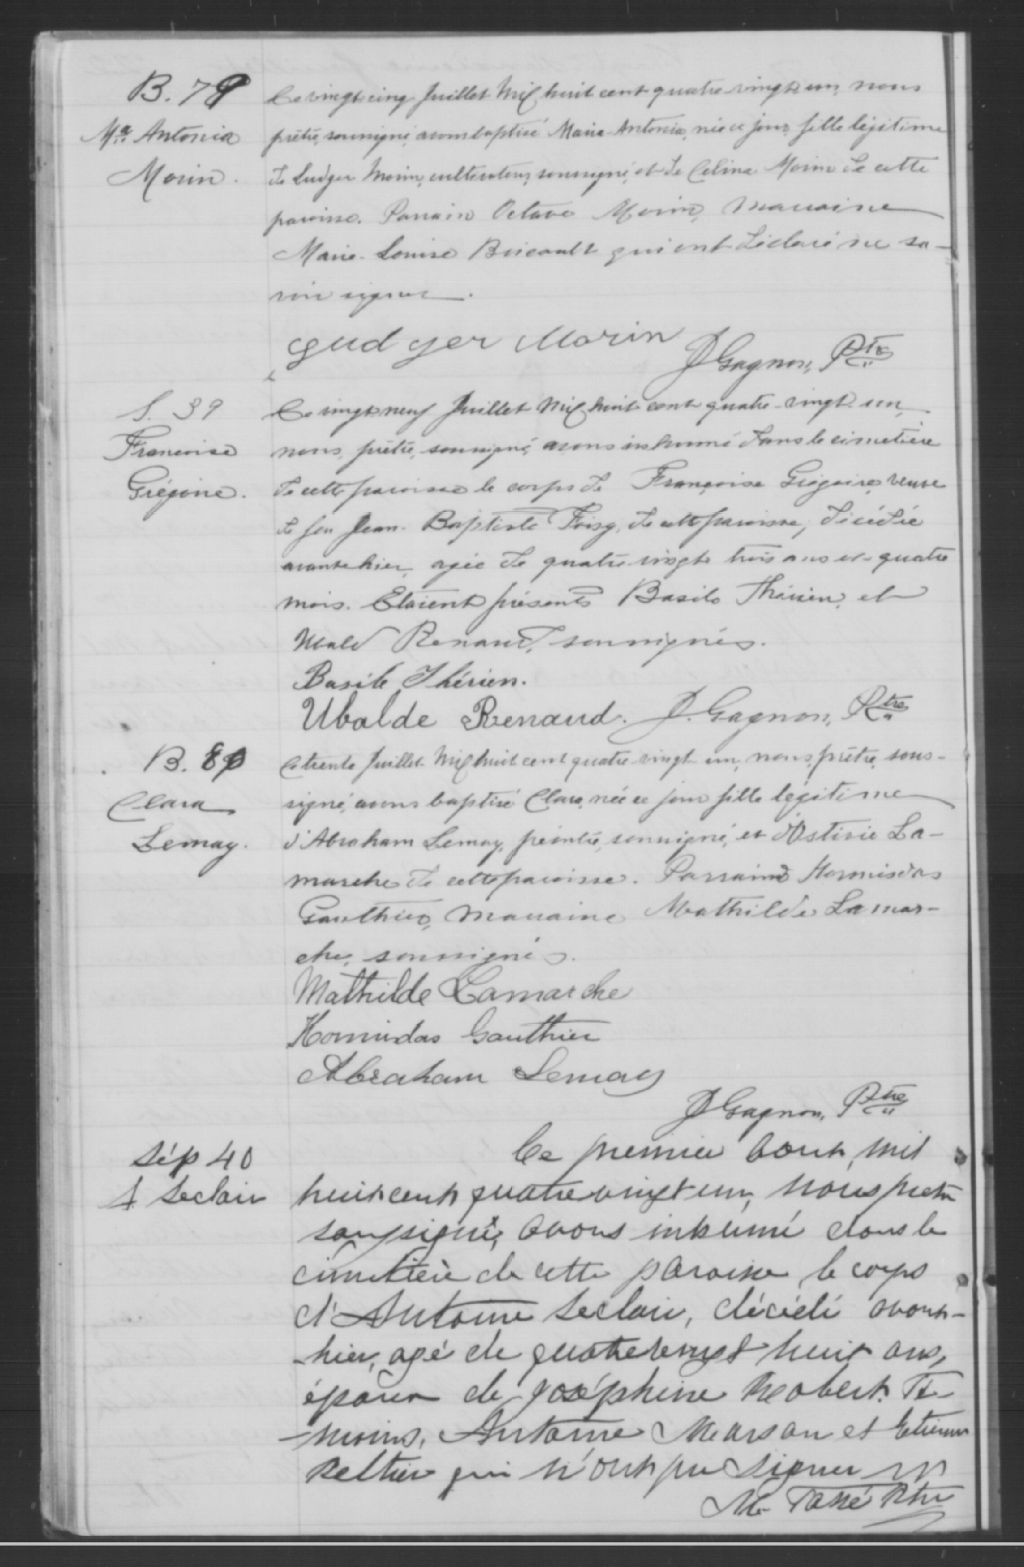 B. 79
Mie Antonia
Morin.
Le vingt cinq Juillet Mil huit cent quatre vingt un, nous
prêtre, soussigné, avons baptisé Marie Antonia, née ce jour, fille légitime
de Ludger Morin, cultivateur, soussigné, et de Celina Morin de cette
paroisse. Parrain Octave Morin, marraine
Marie-Louise Bricault qui ont déclaré ne sa-
voir signer.
Gud ger Morin
J Gagnon, Ptre
S. 39
Françoise
Grégoire.
Le vingt neuf Juillet Mil huit cent quatre-vingt un,
nous, prêtre, soussigné, avons inhumé dans le cimetière
de cette paroisse le corps de Françoise Grégoire, veuve
de feu Jean-Baptiste Foisy, de cette paroisse, décédée
avant hier, agée de quatre vingt trois ans et quatre
mois. Etaient présents Basile Thérien, et
Renaud, soussignés.
Basile Thérien.
Ubalde Renaud. J. Gagnon, Ptre
B. 80
Clara
Lemay.
Le trente Juillet Mil huit cent quatre-vingt un, nous, prêtre, sous-
signé, avons baptisé Clara, née ce jour fille légitime
d'Abraham Lemay, peintre, soussigné, et La-
marche de cette paroisse. Parrain Hormisdas
Gauthier, marraine Mathilde Lamar-
che, soussignés.
Mathilde Lamarche
Homidas Gauthier
Abraham Lemay
J Gagnon, Ptre
Sép 40
A Leclair
Ce premier Aout, mil
huit cent quatre vingt un, nous pretre
soussigné, avons inhumé dans le
cimetière de cette paroisse, le corps
d'Antoine Leclair, décédé avant-
hier, agé de quatre vingt huit ans,
époux de Joséphine Robert. Té-
moins, Antoine Marsan et Etienne
Peltier qui n'ont pu signer
M. Tassé Ptre